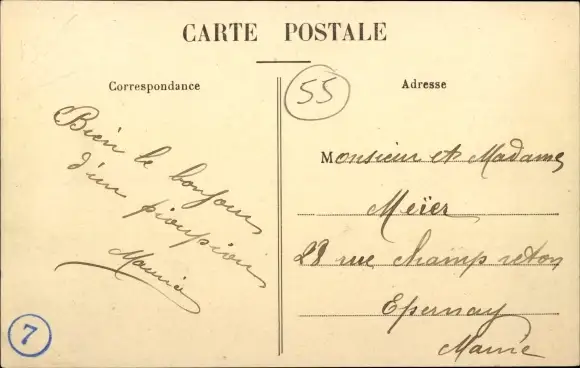 CARTE POSTALE
Correspondance
55
Adresse
Bien le bonjour
d'un pioupiou
Monsieur et Madame
Meïer
28 rue champ
Epernay
Marne
7